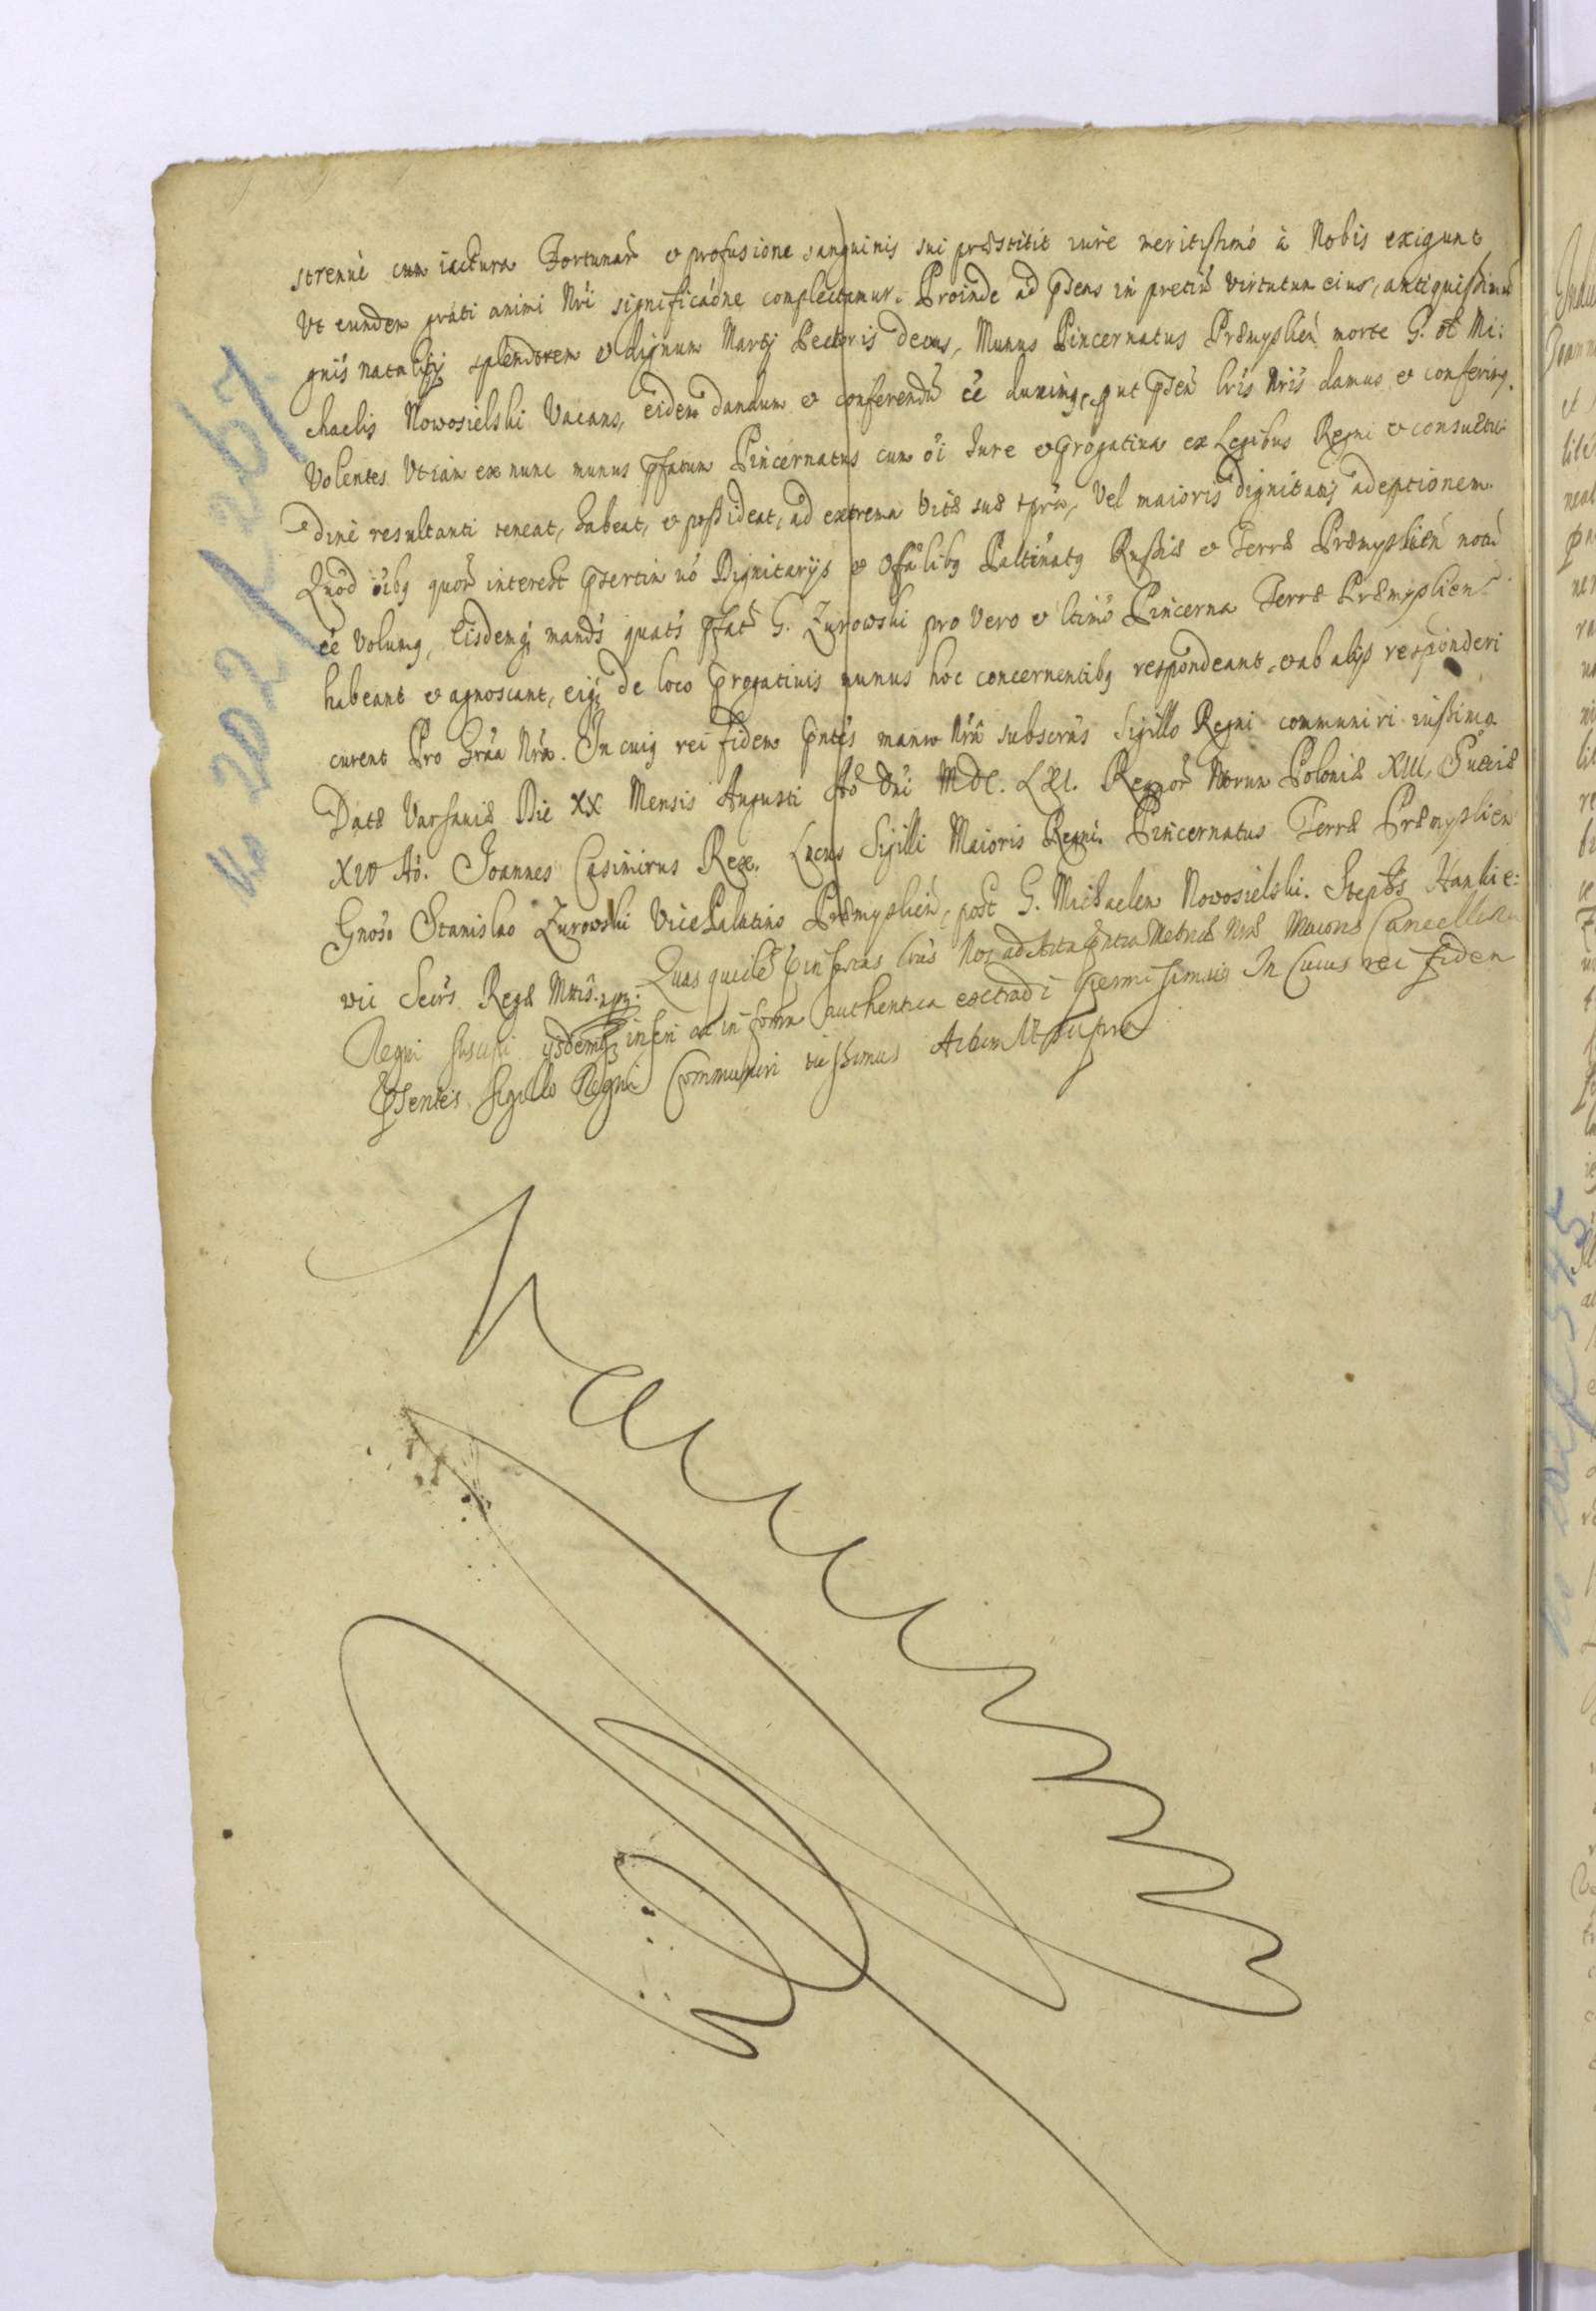 strenuè cum iactura Fortunar et profusione sanguinis sui præstitit iure meritissimó à Nobis exigunt
Vt eundem grati animi Nri significaóne complectamur. Proinde ad pñens in pretiū virtutum eius, antiquissimū
gnis natalijs splendorem et dignum Martij Pectoris decus, Munus Pincernatus Præmyslień morte G. ol Mi:
chaelis Nowosielski Vacans, eidem dandum et conferendū eé duximg, put pñen lris Nris damus et conferimg.
Volentes Vt iam ex nunc munus pfatum Pincernatus cum oi Iure et progatiua ex Legibus Regni et consuetu
dine resultanti teneat, habeat, et possideat, ad extrema Vitæ suæ tpra, Vel maioris dignitatis adeptionem.
Quod oibg quor interest psertim vó Dignitarijs et Offalibg Paltinatg Russiæ et Terræ Præmyslień notū
eé Volumg, Eisdemq mands quats pfat G. Zurowski pro Vero et ltimo Pincerna Terræ Præmyslien
habeant et agnoscant, eiq de loco progatiuis munus hoc concernentibg respondeant, et ab alijs responderi
curent Pro Gráa Nrá. In cuig rei fidem pntes manu Nrá subscrus Sigillo Regni communiri iussimg
Datæ Varsauiæ Die XX Mensis Augusti Aō Dni MDC. LXI. Regnor Nrorum Poloniæ XIII, Sueciæ
XIV Aó. Joannes Casimirus Rex. Locus Sigilli Maioris Regni. Pincernatus Terræ Præmyslien
Gnoso Stanislao Zurowski Vice Palatino Præmyslien, post G. Michaelem Nowosielski. Stephs Hankie:
vic Secrs Regæ Mttis. mpp. Quas quidē lris Nos ad Metricæ Nræ Maioris Cancellariæ
Regni suscipi ijsdemq inseri ac in forma authentica extradi permisimus In Cuius rei fidem
Psentes Sigillo Regni Communiri iussimus Actum Ut supra